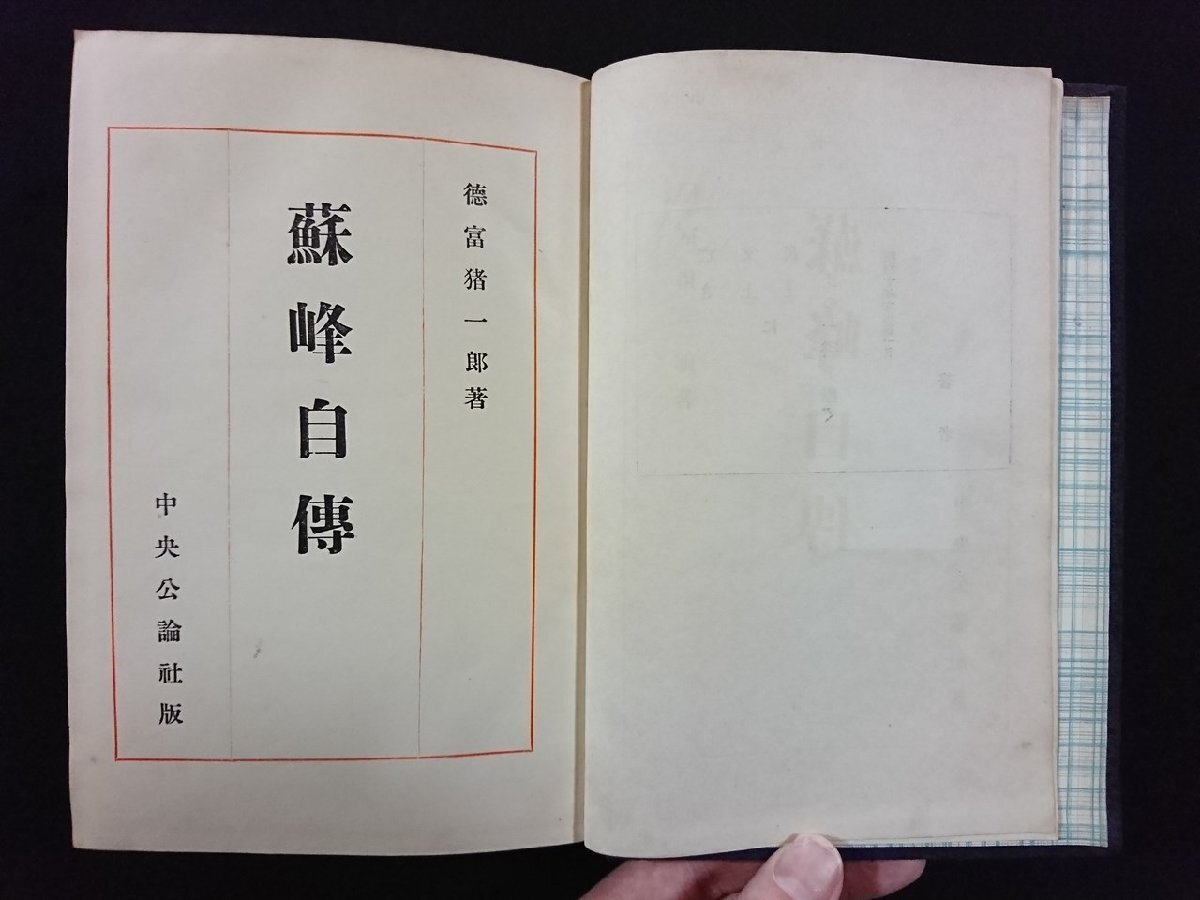 德富猪一郎著
蘇峰自傳
中央公論社版